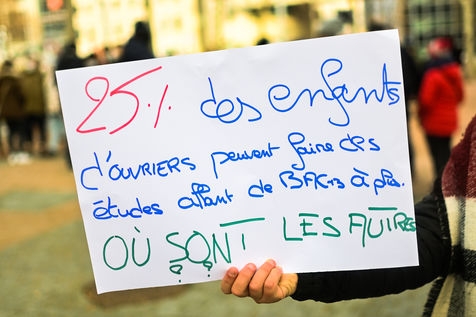 25% des enfants
d'OUVRIERS peuvent faire des
études allant de BAC+3 à plus.
OÙ SONT LES AUTRES